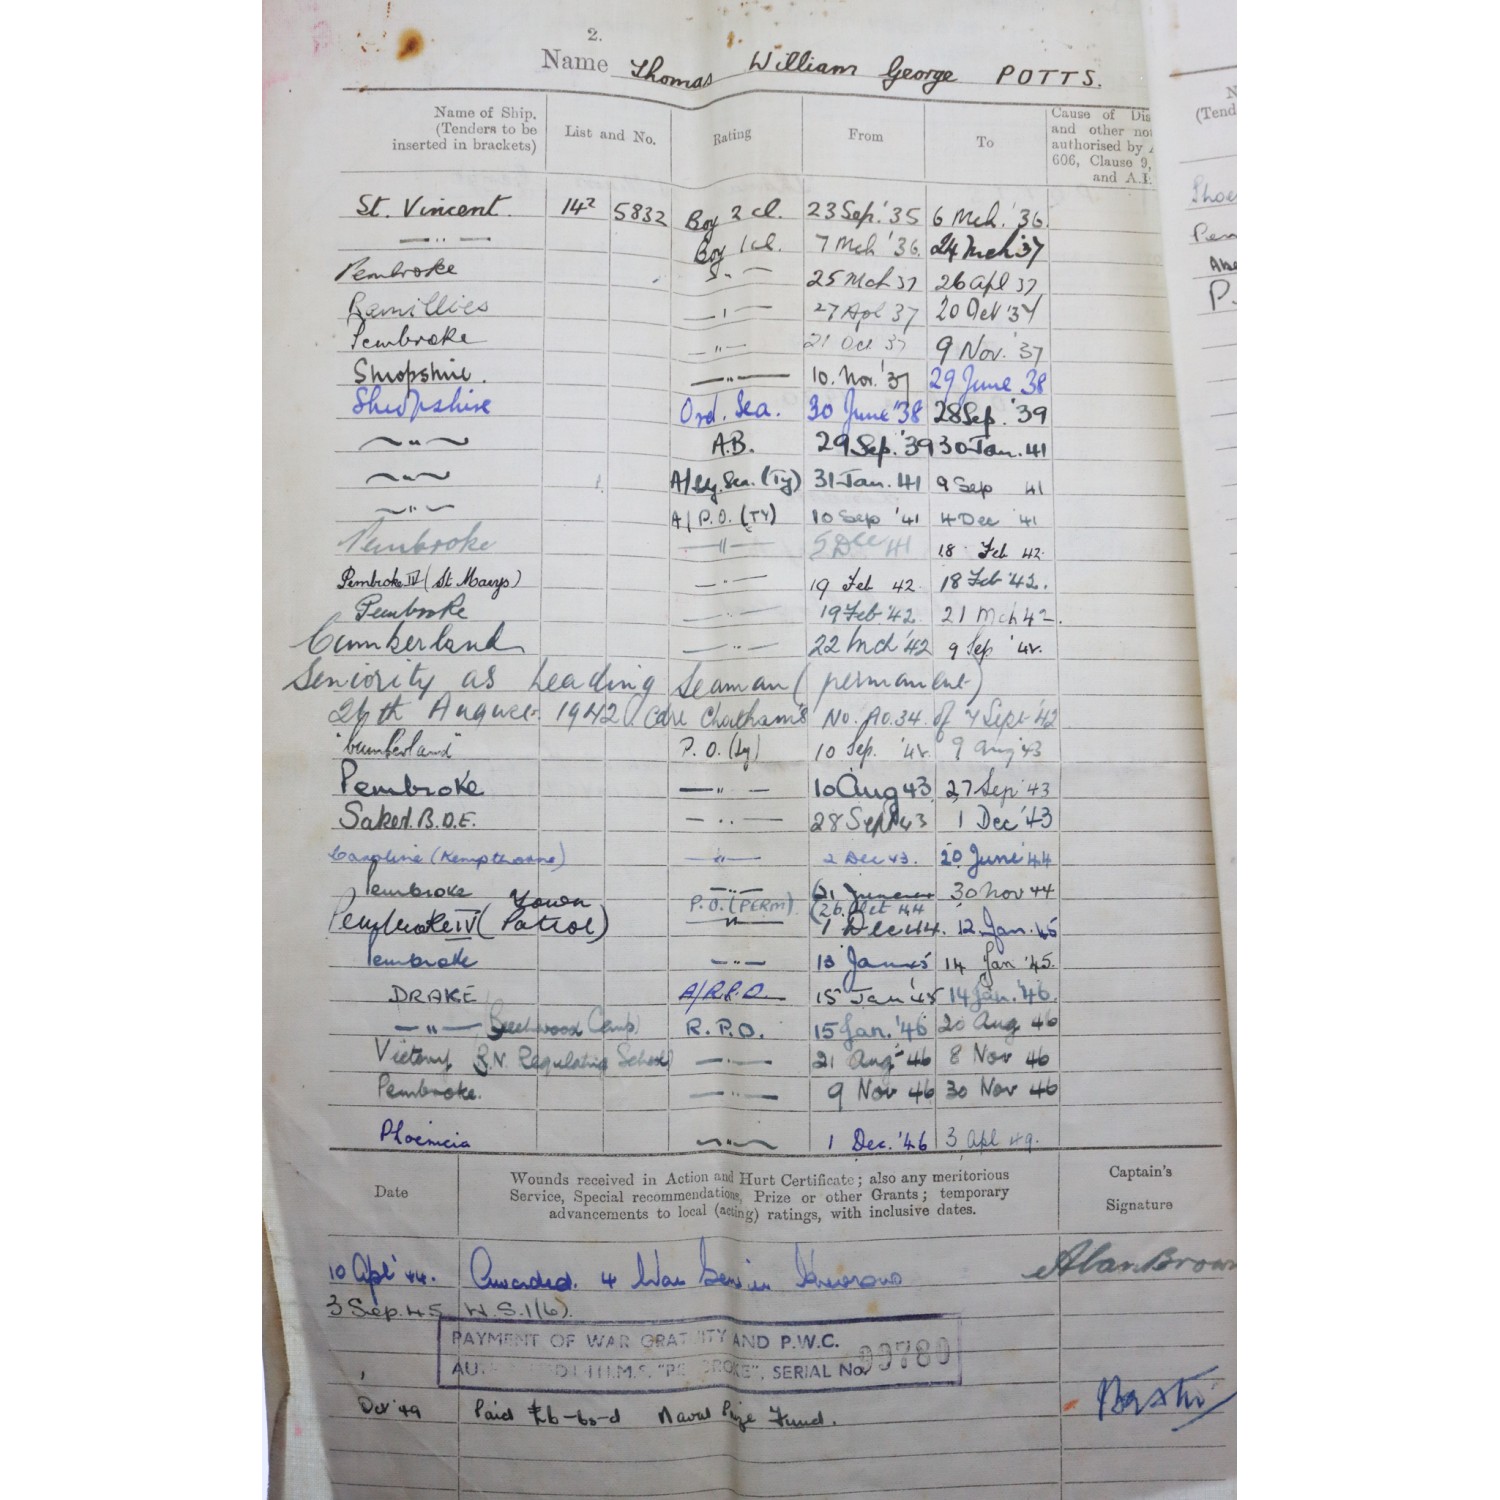 2.
Name Thomas William George POTTS.
Name of Ship. (Tenders to be inserted in brackets) List and No. Rating From To Cause of Dis and other no authorised by 606, Clause 9, and A.
N
(Tend
St. Vincent. 14² 5832 Boy 2 cl. 23 Sep. '35 6 Mch. '36.
—"— Boy 1 cl. 7 Mch '36. 24 Mch '37
Pembroke —"— 25 Mch 37 26 Apl 37
Ramillies —"— 27 Apl 37 20 Oct '37
Pembroke —"— 21 Oct 37 9 Nov. '37
Shropshire. —"— 10. Nov. '37 29 June 38
Shropshire Ord. Sea. 30 June '38 28 Sep. '39
~"~ A.B. 29 Sep. '39 30 Jan. 41
~"~ A/Ldg. Sea. (Ty) 31 Jan. 41 9 Sep 41
~"~ A/P.O. (TY) 10 Sep '41 4 Dec '41
Pembroke —"— 5 Dec 41 18 Feb 42.
Pembroke IV (St Marys) —"— 19 Feb 42. 18 Feb '42.
Pembroke —"— 19 Feb '42. 21 Mch 42.
Cumberland —"— 22 Mch '42 9 Sep '42.
Seniority as Leading Seaman (permanent)
26th August 1942 Chatham's No. of 7 Sept '42
"Cumberland" P.O. (Ty) 10 Sep. '42. 9 Aug '43
Pembroke —"— 10 Aug 43 27 Sep '43
Saker. B.D.E. —"— 28 Sept 43 1 Dec '43
Caroline (Kempthorne) —"— 2 Dec 43. 20 June '44
Pembroke —"— 21 June 44 30 Nov 44
P.O. (PERM) (26. Oct 44
Pembroke IV (Town Patrol) —"— 1 Dec 44. 12 Jan. 45
Pembroke —"— 13 Jan 45 14 Jan '45.
DRAKE A/R.P.O. 15 Jan '45 14 Jan. '46.
—"— (Beechwood Camp) R.P.O. 15 Jan. '46 20 Aug 46
Victory R.N. Regulating School —"— 21 Aug 46 8 Nov 46
Pembroke. —"— 9 Nov 46 30 Nov 46
Phoenicia ~"~ 1 Dec. '46 3 Apl 49.
Date Wounds received in Action and Hurt Certificate; also any meritorious Service, Special recommendations, Prize or other Grants; temporary advancements to local (acting) ratings, with inclusive dates. Captain's Signature
10 Apl '44. Awarded. 4 War Service Chevrons Alan Brown
3 Sep. 45 W.S.1(b).
PAYMENT OF WAR GRATUITY AND P.W.C.
H.M.S. "PEMBROKE", SERIAL No. 99780
Oct '49 Paid £6-6s-d Naval Prize Fund.